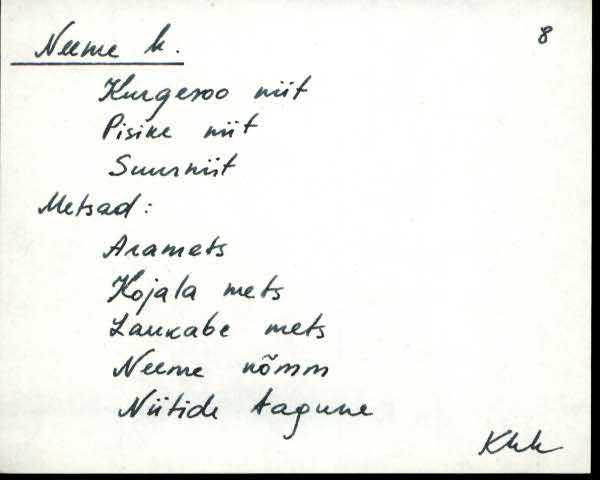 Neeme k. 8
Kurgesoo niit
Pisike niit
Suurniit
Metsad:
Aramets
Kojala mets
Laukabe mets
Neeme nõmm
Niitide tagune
Khk